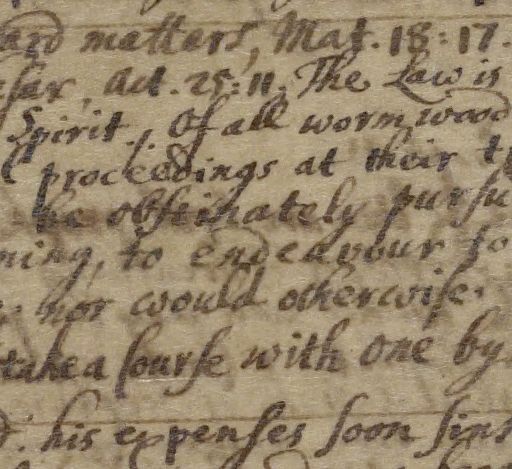 ard matters, Mat. 18:17.
esar, Act. 25:11. The Law is
Spirit. Of all wormwood
proceedings at their
he obstinately pursu
ning, to endeavour to
nor would otherwise.
take a Course with one by
his expenses soon sins